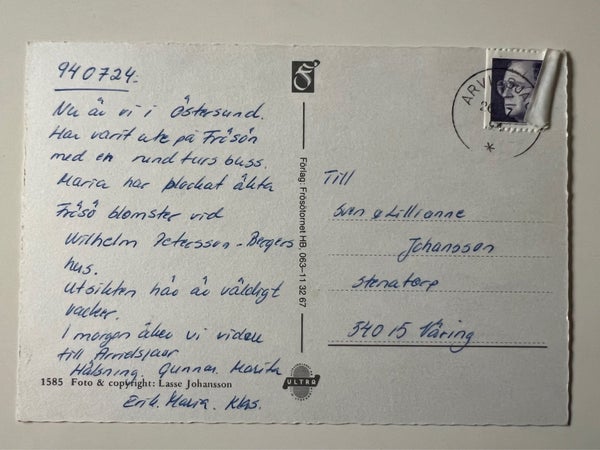 940724.
Nu är vi i Östersund.
Har varit ute på Frösön
med en rundturs buss.
Maria har plockat äkta
Frösö blomster vid
Wilhelm Petersson-Bergers
hus.
Utsikten här är väldigt
vacker.
I morgon åker vi vidare
till Arvidsjaur
Hälsning. Gunnar. Marita
Erik. Maria. Klas.
1585 Foto & copyright: Lasse Johansson
Förlag: Frösötornet HB, 063-11 32 67
ULTRA
Till
Sven o Lillianne
Johansson
Stenatorp
54015 Väring